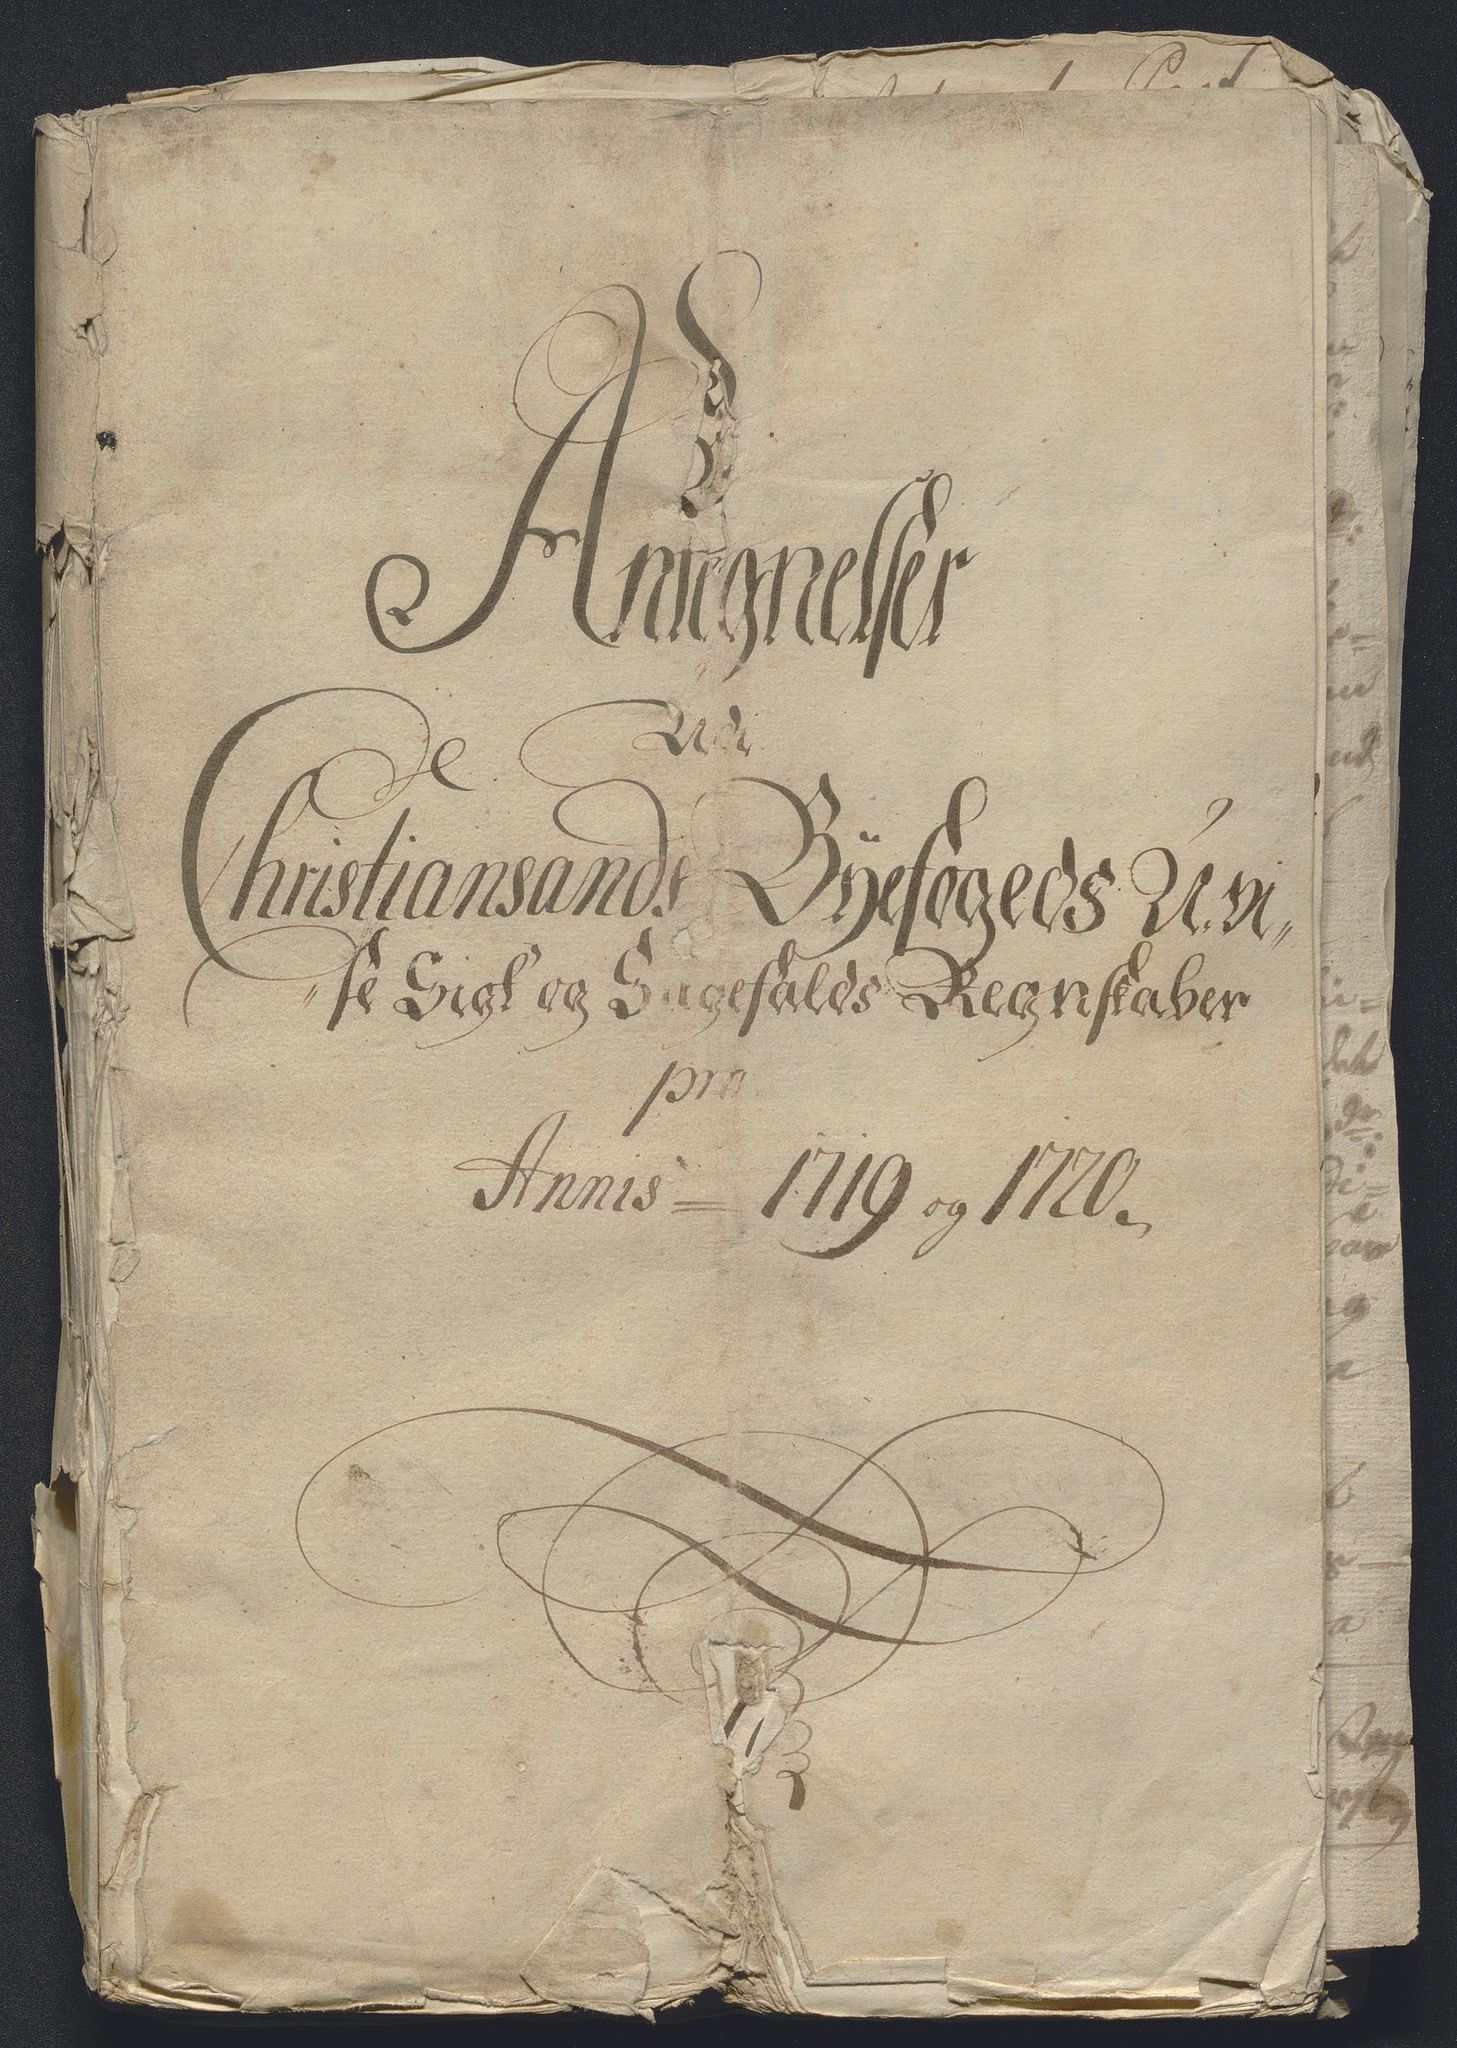 Antegnelser
Udi
Christiansands Byefogeds U-vi-
-se Sigt og Sagefalds Regnskaber
pro
Annis = 1719 og 1720.